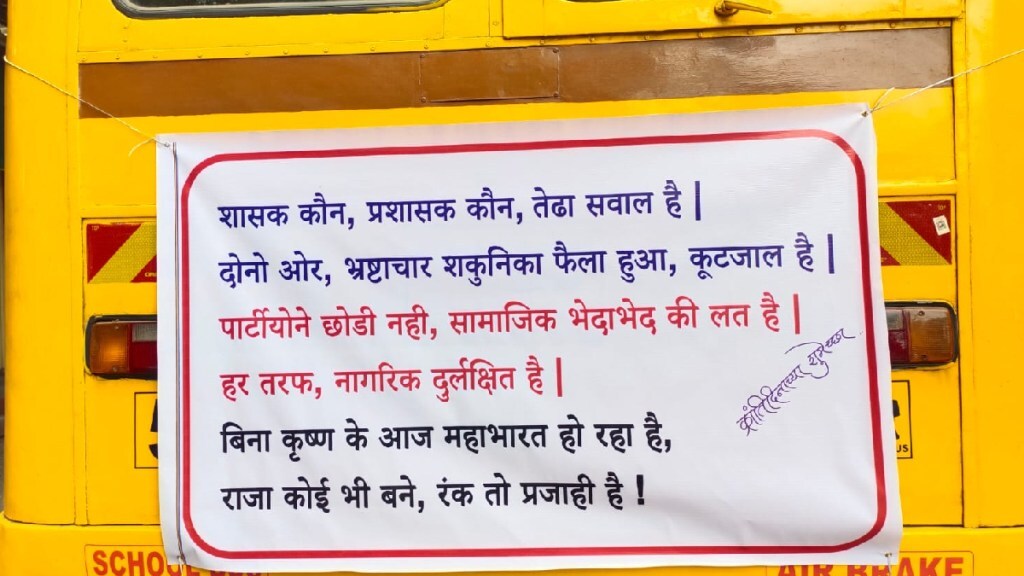 शासक कौन, प्रशासक कौन, तेढा सवाल है |
दोनो ओर, भ्रष्टाचार शकुनिका फैला हुआ, कूटजाल है |
पार्टीयोने छोडी नही, सामाजिक भेदाभेद की लत है |
हर तरफ, नागरिक दुर्लक्षित है |
क्रांतिदिनाच्या
बिना कृष्ण के आज महाभारत हो रहा है,
राजा कोई भी बने, रंक तो प्रजाही है !
SCHOOL
AIR BRAKE